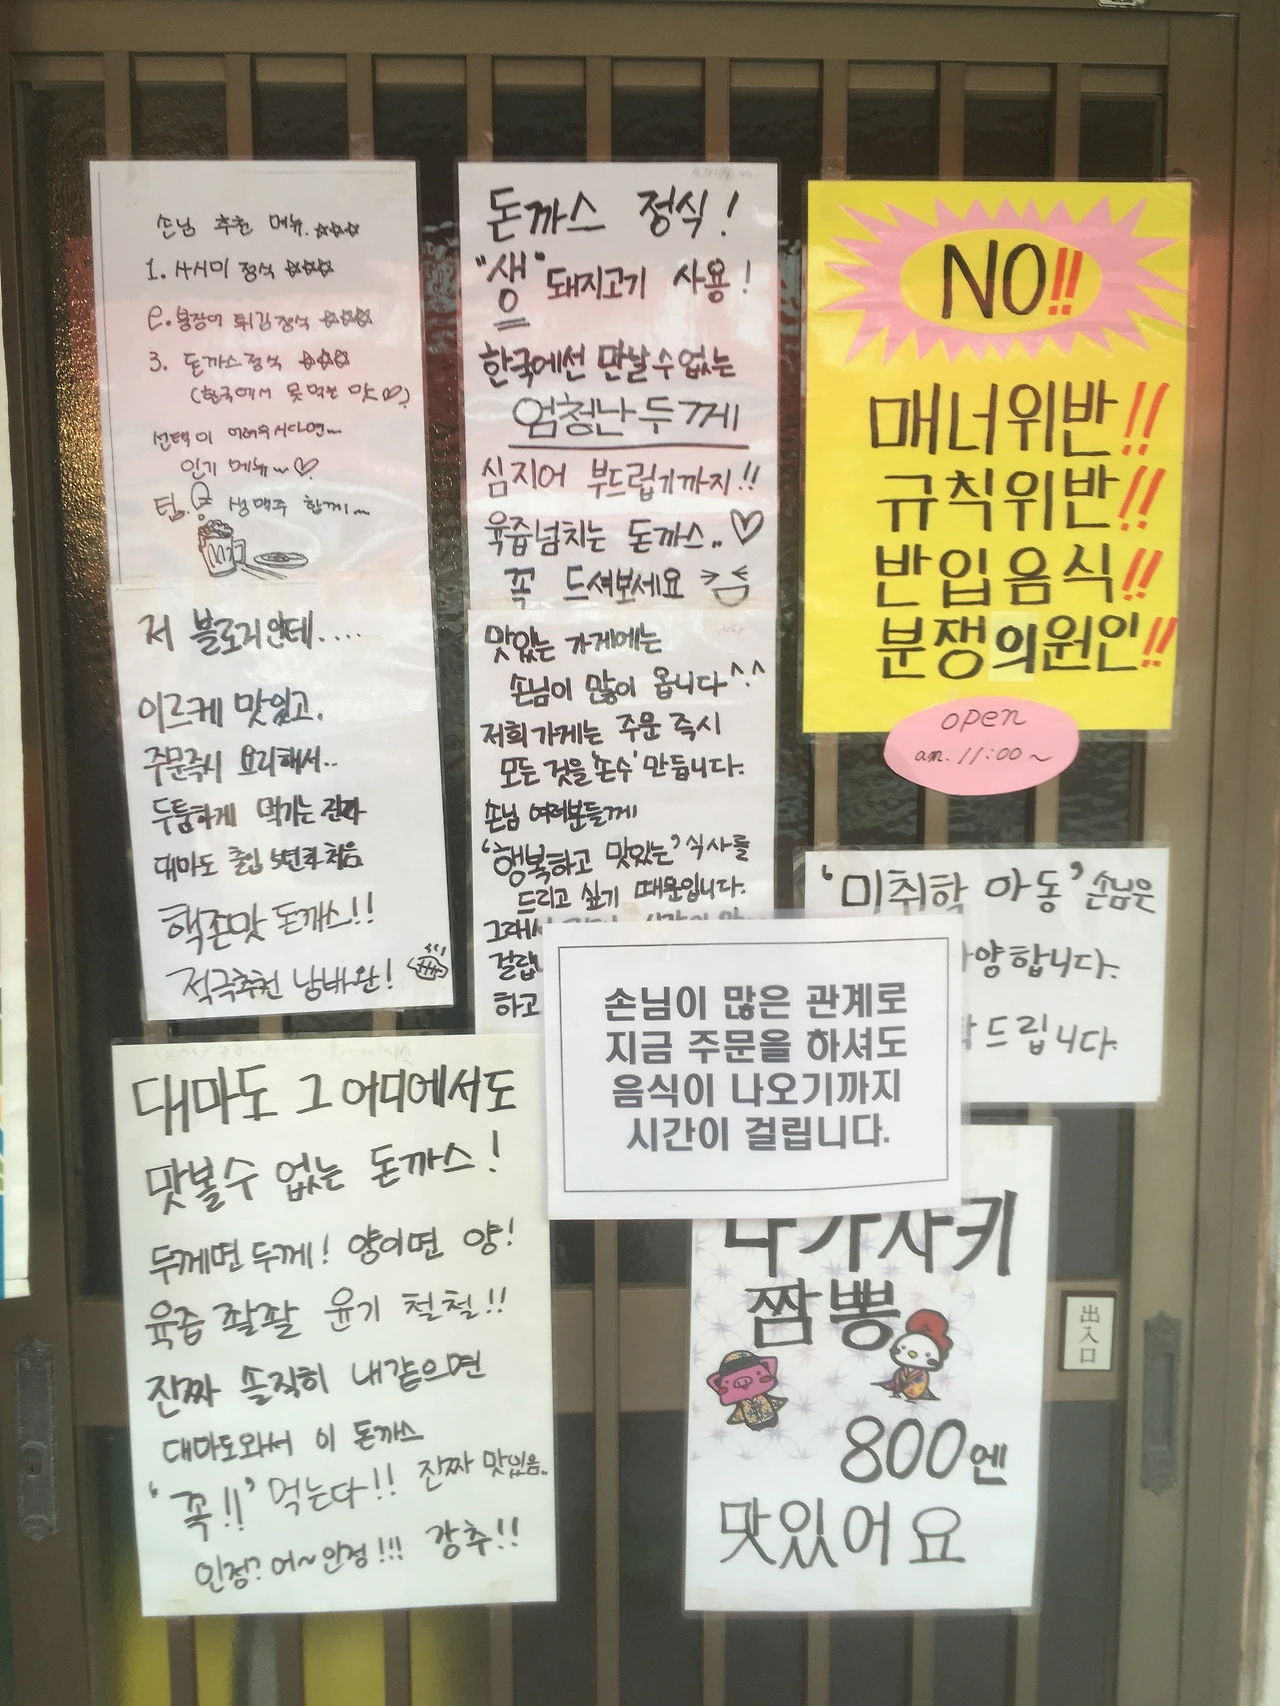 손님 추천 메뉴. ☆☆☆
1. 사시미 정식 ☆☆☆
2. 붕장어 튀김정식 ☆☆☆
3. 돈까스정식 ☆☆☆
(한국에서 못먹는 맛♡)
선택이 어려우시다면~
인기 메뉴~♡
팁. 생맥주 함께~
저 블로거인데....
이르케 맛있고.
주문즉시 요리해서..
두툼하게 먹기는 진짜
대마도 출입 5년만처음
핵존맛 돈까스!!
적극추천 넘버완!
대마도 그 어디에서도
맛볼수 없는 돈까스!
두께면 두께! 양이면 양!
육즙 좔좔 윤기 철철!!
진짜 솔직히 내같으면
대마도와서 이 돈까스
'꼭!!' 먹는다!! 진짜 맛있음..
인정? 어~인정!!! 강추!!
돈까스 정식!
"생" 돼지고기 사용!
한국에선 만날수없는
엄청난두께
심지어 부드럽기까지!!
육즙넘치는 돈까스..♡
꼭 드셔보세요
맛있는 가게에는
손님이 많이 옵니다^^
저희가게는 주문 즉시
모든 것을 '손수' 만듭니다.
손님 여러분들께
'행복하고 맛있는' 식사를
드리고 싶기 때문입니다.
그래서
걸립
하고
NO!!
매너위반!!
규칙위반!!
반입음식!!
분쟁의원인!!
open
am. 11:00~
'미취학 아동' 손님은
양합니다.
드립니다.
손님이 많은 관계로
지금 주문을 하셔도
음식이 나오기까지
시간이 걸립니다.
나가사키
짬뽕
800엔
맛있어요
出入口